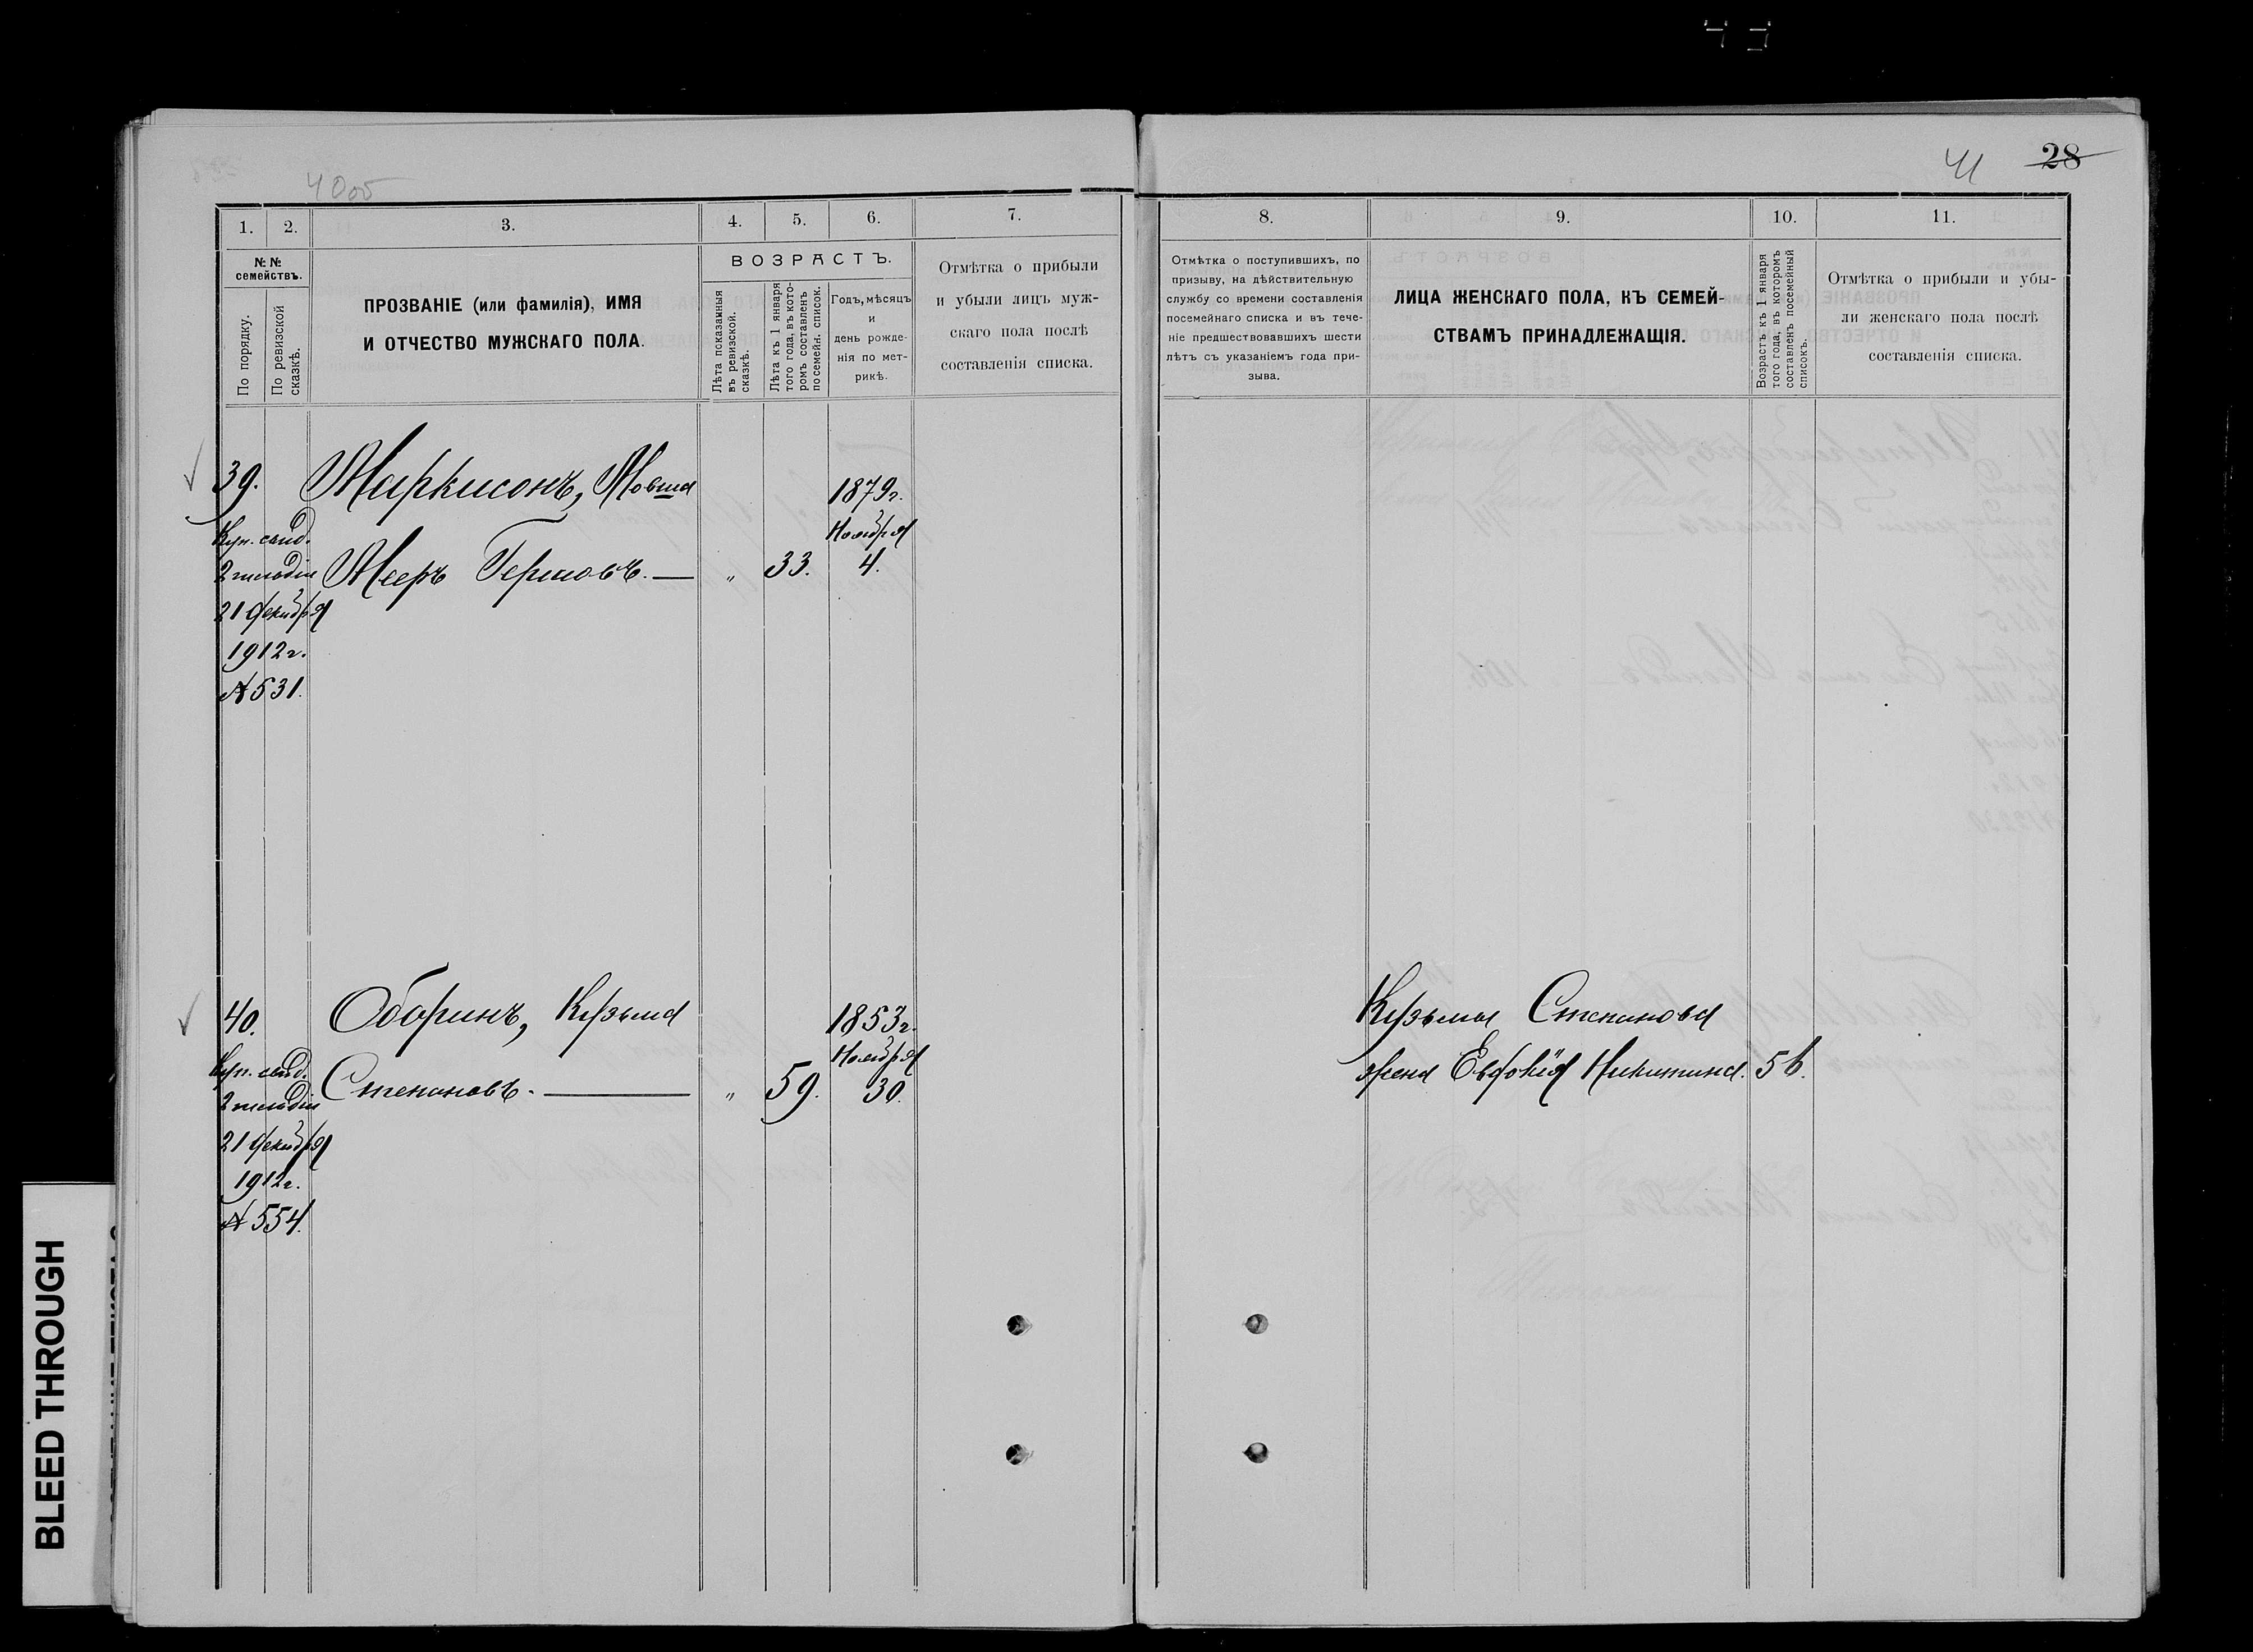 41
28
40об
1.
2.
3.
4.
5.
6.
7.
8.
9.
10.
11.
№ №
семействъ.
По порядку.
По ревизской
сказкѣ.
ПРОЗВАНІЕ (или фамилія), ИМЯ
И ОТЧЕСТВО МУЖСКАГО ПОЛА.
ВОЗРАСТЪ.
Лѣта показамныя
въ ревизской.
сказкѣ.
Лѣта къ 1 января
того года, въ кото-
ромъ составленъ
посемейн. список.
Годъ, мѣсяцъ
и
день рожде-
нія по мет-
рикѣ.
Отмѣтка о прибыли
и убыли лицъ муж-
скаго пола послѣ
составленія списка.
Отмѣтка о поступившихъ, по
призыву, на дѣйствительную
службу со времени составленія
посемейнаго списка и въ тече-
ніе предшествовавшихъ шести
лѣтъ съ указаніемъ года при-
зыва.
ЛИЦА ЖЕНСКАГО ПОЛА, КЪ СЕМЕЙ-
СТВАМЪ ПРИНАДЛЕЖАЩІЯ.
Возрастъ къ 1 января
того года, въ которомъ
составленъ посемейный
списокъ.
Отмѣтка о прибыли и убы-
ли женскаго пола послѣ
составленія списка.
39. Маркисонъ, Мовша 1879г.
Куп. свид. Ноября
2 гильдіи Мееръ Гершовъ. — „ 33. 4.
21 Декабря
1912 г.
№ 531.
40. Оборинъ, Кузьма 1853 г. Кузьмы Степанова
Куп. свид. Ноября
2 гильдіи Степановъ. — „ 59. 30. жена Евдокія Никитина. 56.
21 Декабря
1912 г.
№ 554.
BLEED THROUGH